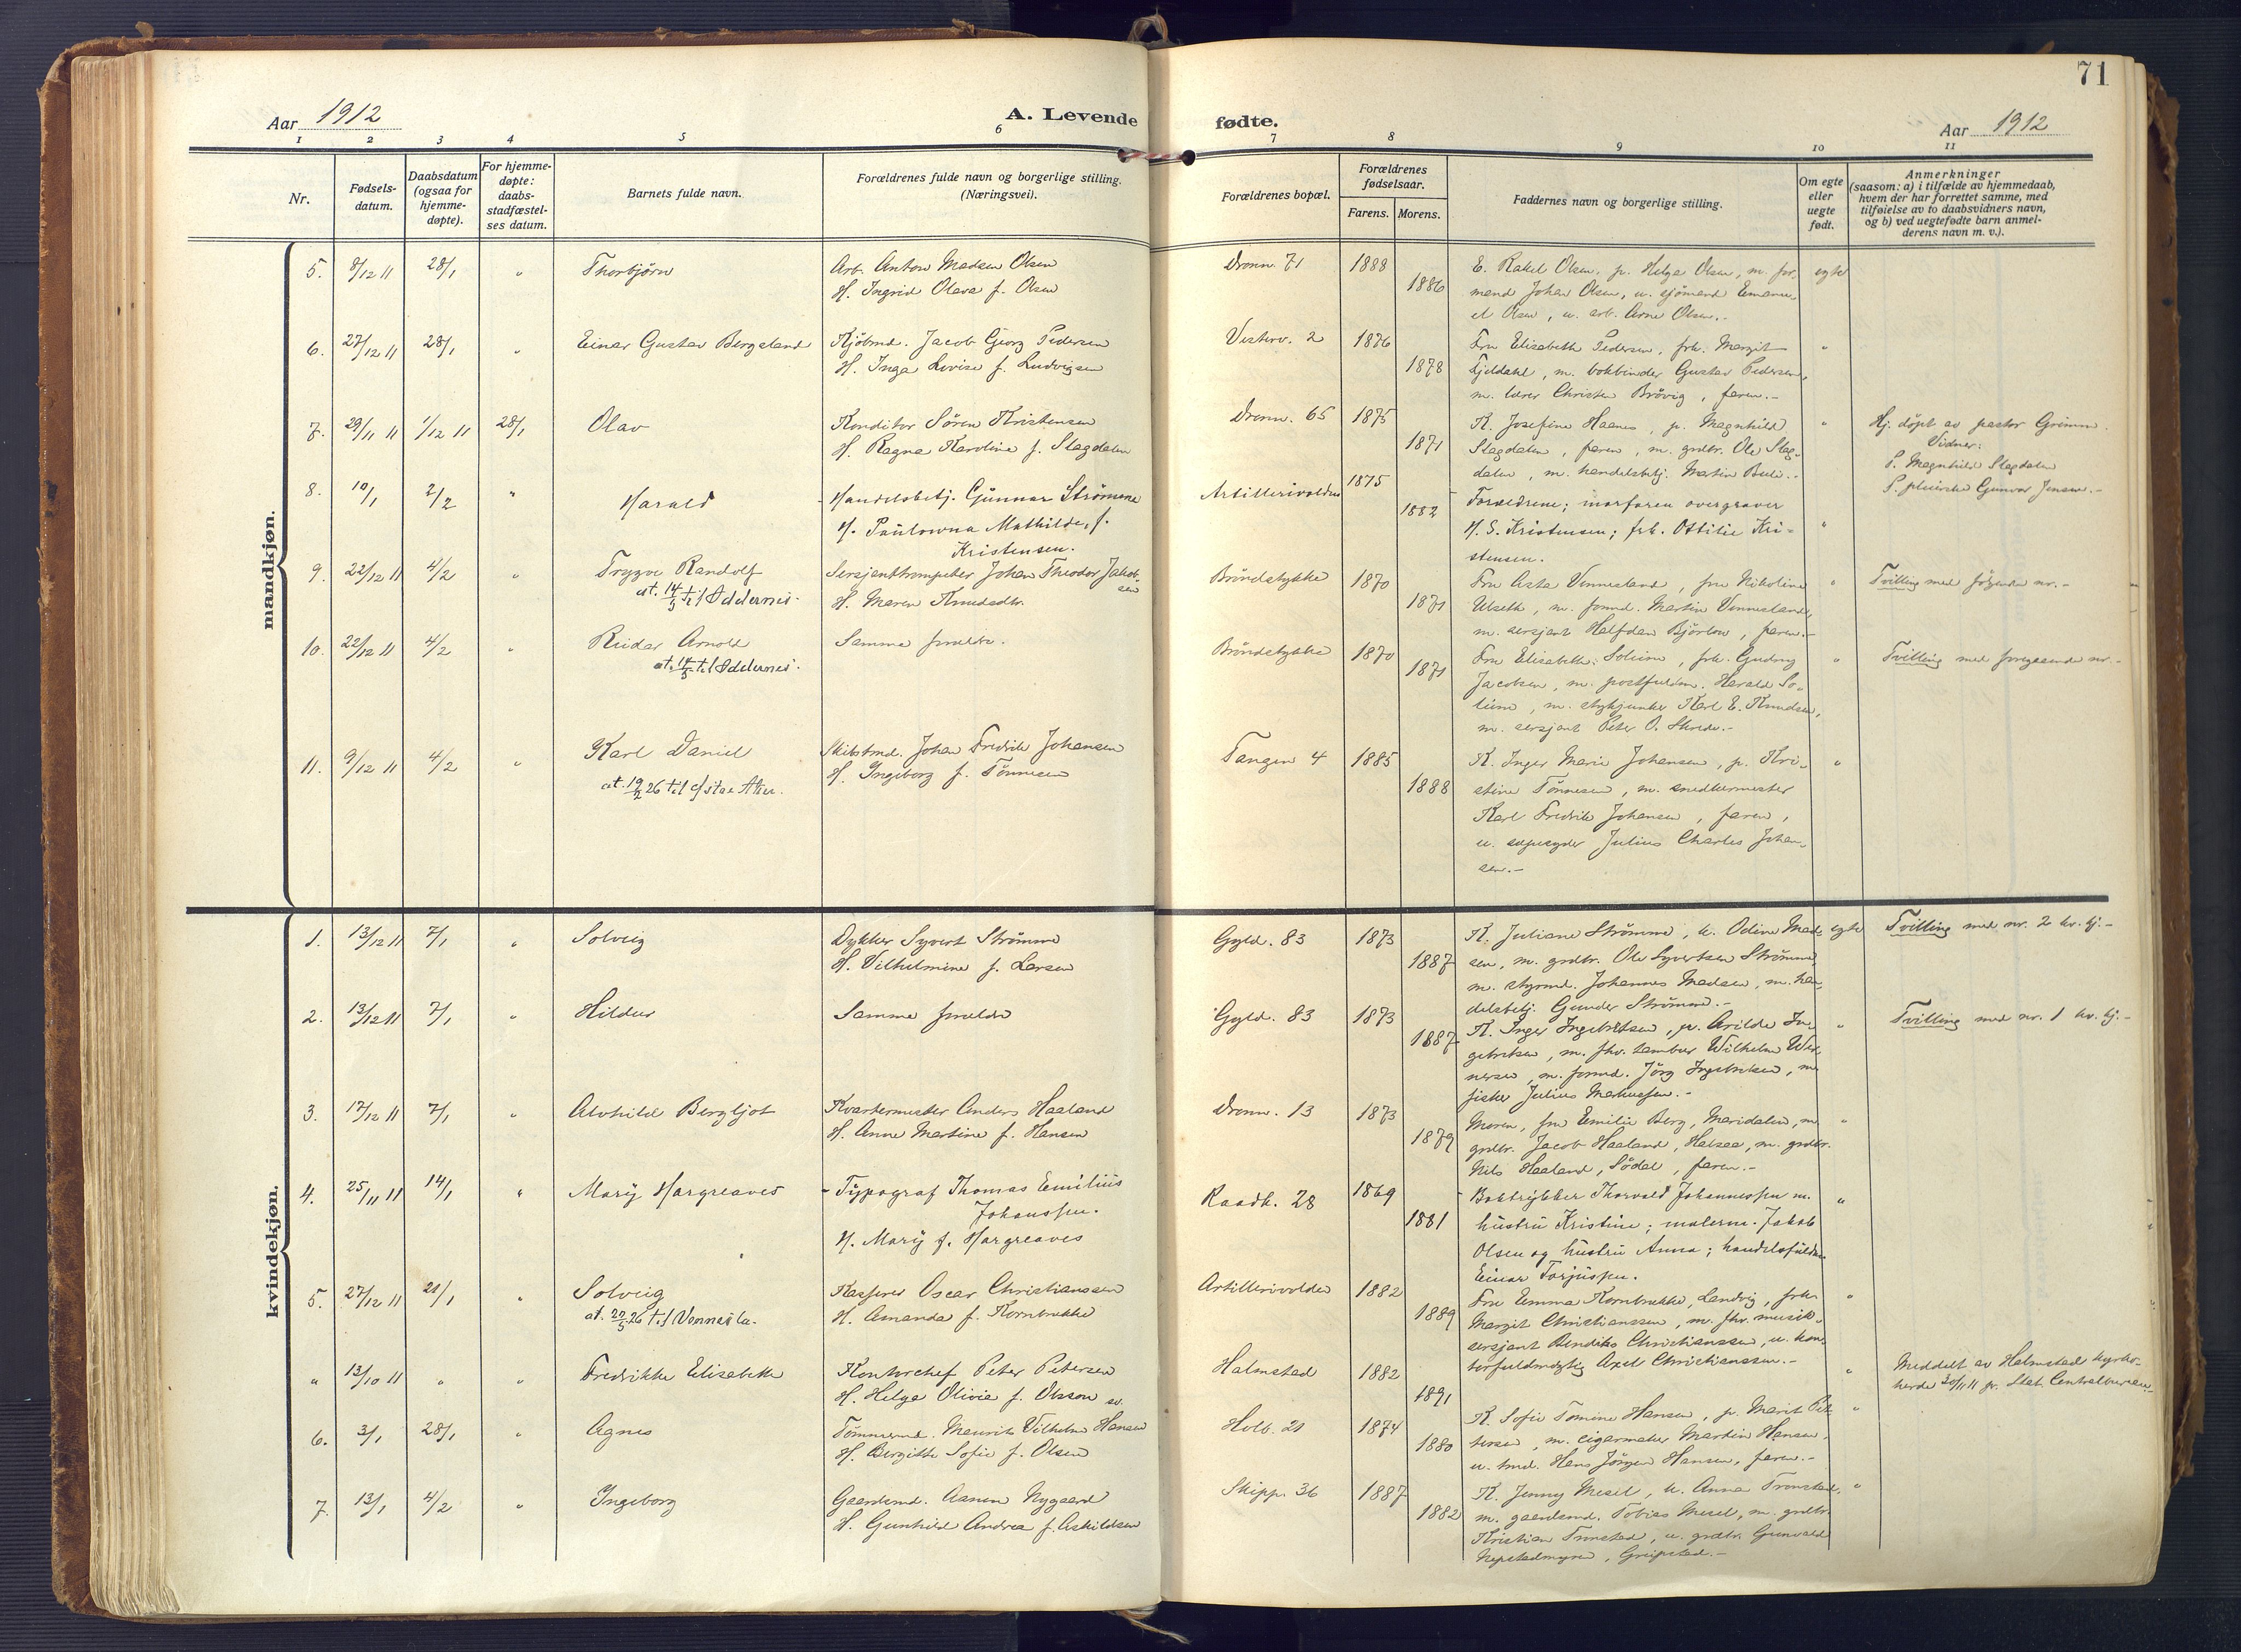 71
Aar 1912
A. Levende
fødte.
Aar 1912
1 2 3 4 5 6 7 8 9 10 11
Nr.
Fødsels-
datum.
Daabsdatum
(ogsaa for
hjemme-
døpte).
For hjemme-
døpte:
daabs-
stadfæstel-
ses datum.
Barnets fulde navn.
Forældrenes fulde navn og borgerlige stilling.
(Næringsvei).
Forældrenes bopæl.
Forældrenes
fødselsaar.
Farens. Morens.
Faddernes navn og borgerlige stilling.
Om egte
eller
uegte
født.
Anmerkninger
(saasom: a) i tilfælde av hjemmedaab,
hvem der har forrettet samme, med
tilføielse av to daabsvidners navn,
og b) ved uegtefødte barn anmel-
derens navn m. v.).
mandkjøn.
5. 8/12 11 28/1 " Thorbjørn
Arb. Anton Madsen Olsen
H. Ingrid Olava f. Olsen
Dronn. 71 1888 1886
E. Rakel Olsen, p. Helga Olsen, m. for-
mand Johan Olsen, u. sjömand Emanu-
el Olsen, u. arb. Arne Olsen.-
egte
6. 27/12 11 28/1 " Einar Gustav Bergsland
Kjöbmd. Jacob Georg Pedersen
H. Inga Lovise f. Ludvigsen
Vesterv. 2 1876 1878
Fru Elisabeth Pedersen, frk. Margit
Fjeldahl, m. bokbinder Gustav Pedersen,
m. lærer Christen Brövig, faren.-
"
7. 29/11 11 1/12 11 28/1 Olav
Konditor Sören Kristensen
H. Ragna Karoline f. Slagdalen
Dronn. 65 1875 1871
K. Josefine Haanes, p. Magnhild
Slagdalen, faren, m. grdbr. Ole Slag-
dalen, m. handelsbtj. Martin
"
Hj. döpt av pastor Grimm.
Vidner:
P. Magnhild Slagdalen
P. pleierske Gunvor Jensen.-
8. 10/1 2/2 " Harald
Handelsbetj. Gunnar Strömme
H. Paulowna Mathilde, f.
Kristensen.
Artillerivolden 1875 1882
Forældrene; morfaren overgraver
H. S. Kristensen; frk. Ottilie Kri-
stensen.
"
9. 22/12 11 4/2 " Trygve Randolf
at. 14/5 til Oddernes.
Sersjanttrompeter Johan Theodor Jakob-
sen
H. Maren Knudsdtr.
Bröndstykke 1870 1871
Fru Asta Vennesland, fru Nikoline
Ulseth, m. formd. Martin Vennesland,
m. sersjant Halfdan Björlow, faren.-
"
Tvilling med følgende nr.-
10. 22/12 11 4/2 " Reidar Arnold
at. 14/5 til Oddernes.
Samme forældre.
Bröndstykke 1870 1871
Fru Elisabeth Solum, frk. Gudny
Jacobsen, m. postfuldm. Harald So-
lum, m. stykjunker Karl E. Knudsen,
m. sersjant Peter O.
"
Tvilling med foregaaende nr.-
11. 9/12 11 4/2 " Karl Daniel
at. 19/2 26 til
Skibstmd. Johan Fredrik Johansen
H. Ingeborg f. Tönnesen
Tangen 4 1885 1888
K. Inger Marie Johansen, p. Kri-
stine Tönnesen, m. snedkermester
Karl Fredrik Johansen, faren,
u. sæpesyder Julius Charles Johan-
sen.-
"
kvindekjøn.
1. 13/12 11 7/1 " Solveig
Dykker Syvert Strömme
H. Vilhelmine f. Larsen
Gyld. 83 1873 1887
K. Juliane Strömme, k. Odine Mad-
sen, m. grdbr. Ole Syvertsen Strömme,
m. styrmd. Johannes Madsen, m. han-
delsbetj. Gunder Strömme.-
egte
Tvilling med nr. 2 kv. kj.-
2. 13/12 11 7/1 " Hildur
Samme forældre
Gyld. 83 1873 1887
K. Inger Ingebretsen, p. Arilda In-
gebretsen, m. fhv. tambur Wilhelm
m. formd. Jörg Ingebretsen, m.
fisker Julius Markussen.-
"
Tvilling med nr. 1 kv. kj.-
3. 17/12 11 7/1 " Alvhild Bergljot
Kvartermester Anders Haaland
H. Anne Martine f. Hansen
Dronn. 13 1873 1879
Moren, fru Emilie Berg, Maridalen, m.
grdbr. Jacob Haaland, Halsaa, m. grdbr.
Nils Haaland, Södal, faren.-
"
4. 25/11 11 14/1 " Mary Hargreaves
Typograf Thomas Emilius
Johanssen.
H. Mary f. Hargreaves
Raadh. 28 1869 1881
Boktrykker Thorvald Johannessen m.
hustru Kristine; malerm. Jakob
Olsen og hustru Anna; handelsfuldm.
Einar Torjussen.
"
5. 27/12 11 21/1 " Solveig
at. 20/5 26 til Vennesla.
Kasserer Oscar Christianssen
H. Amanda f. Kornbrekke
Artillerivolden 1882 1889
Fru Emma Kornbrekke, Landvig, frk.
Margit Christianssen, m. fhv. musik-
sersjant Bendiks Christianssen, u. kon-
torfuldmægtig Axel Christianssen.-
"
" 13/10 11 " " Fredrikke Elisabeth
Kontorchef Peter Petersen
H. Helga Olivia f. Olsson
Halmstad 1882 1891
"
Meddelt av Halmstad kyrko-
herde 30/11 11 pr. Stat. Centralbureau.-
6. 3/1 28/1 " Agnes
Tömmermd. Maurits Vilhelm Hansen
H. Bergitte Sofie f. Olsen
Holb. 21 1874 1880
K. Sofie Tomine Hansen, p. Marit Pet-
tersen, m. cigarmaker Martin Hansen,
u. tmd. Hans Jörgen Hansen, faren.-
"
7. 13/1 4/2 " Ingeborg
Gaardsmd. Aanen Nygaard
H. Gunhild Andrea f. Askildsen
Skipp. 36 1887 1882
K. Jenny Mesel, u. Anna Tronstad,
m. gaardsmd. Tobias Mesel, m. grdbr.
Kristian Tronstad, u. grdbr. Gunvald
Nepstadmyren, Greipstad.-
"